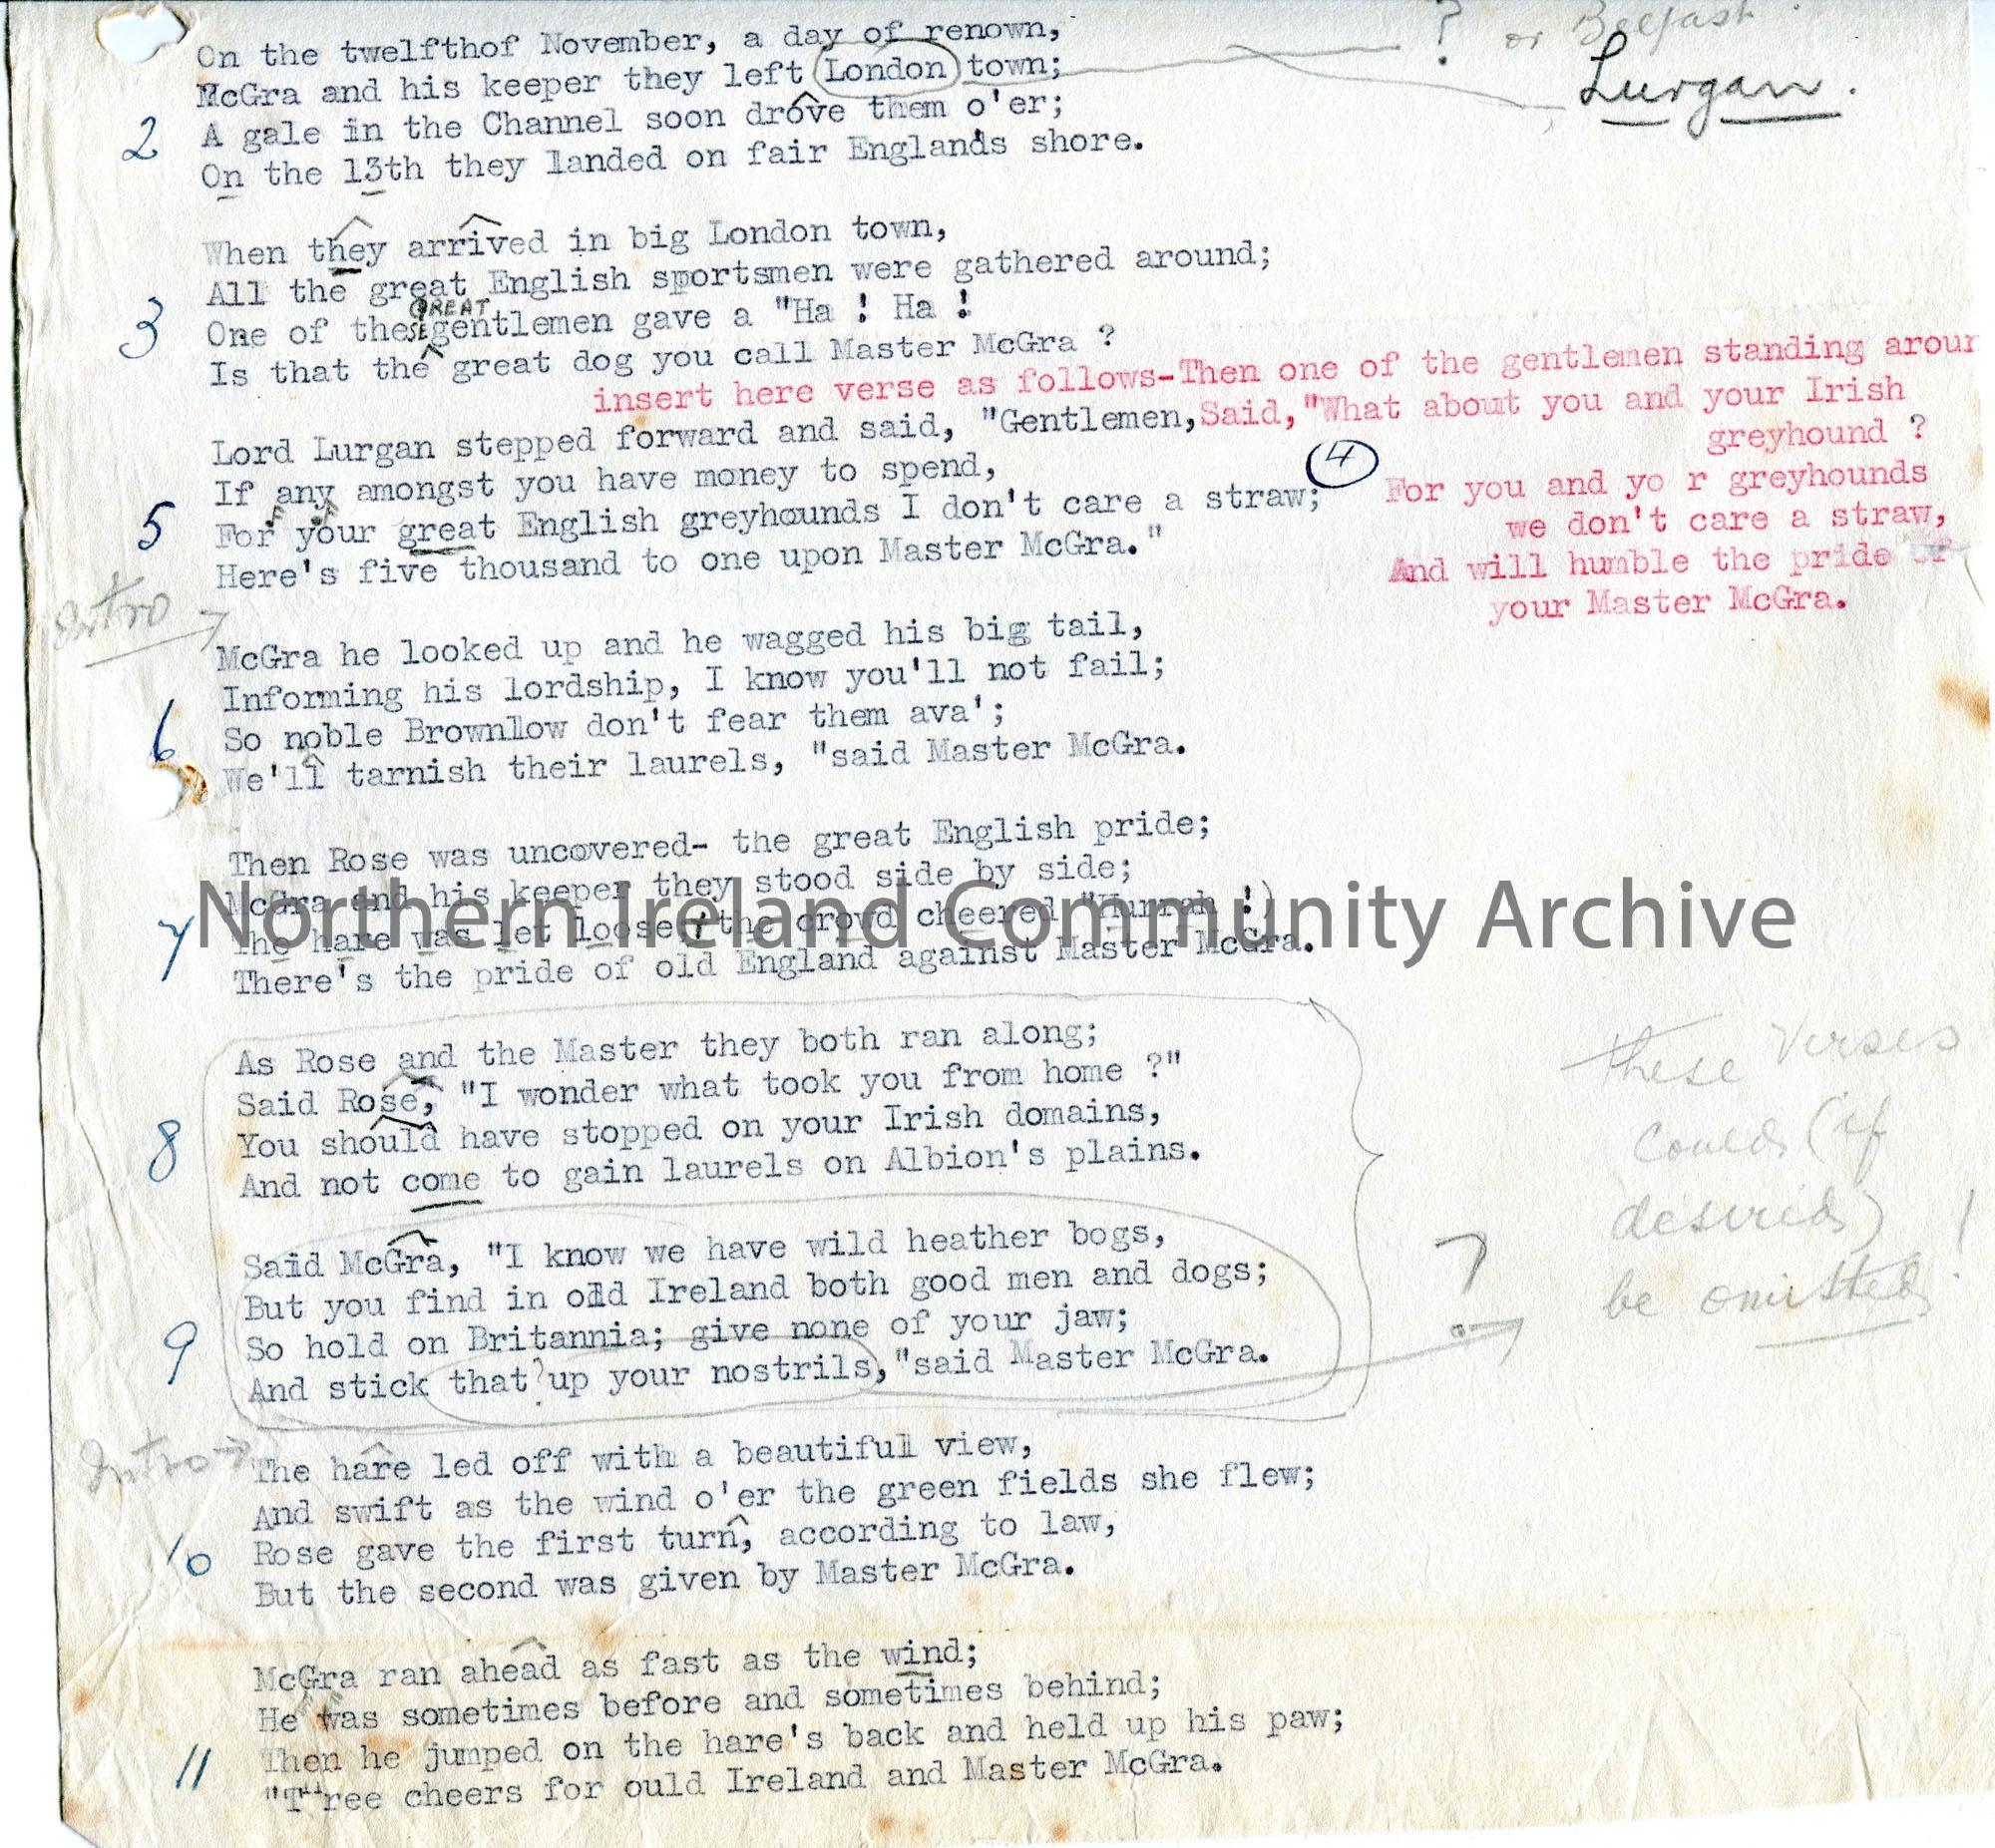 ? or Belfast.
On the twelfthof November, a day of renown,
McGra and his keeper they left London town;
Lurgan.
2 A gale in the Channel soon drove them o'er;
On the 13th they landed on fair Englands shore.
When they arrived in big London town,
All the great English sportsmen were gathered around;
GREAT
3 One of these gentlemen gave a "Ha ! Ha !
Is that the great dog you call Master McGra ?
insert here verse as follows-Then one of the gentlemen standing aroun
Lord Lurgan stepped forward and said, "Gentlemen, Said, "What about you and your Irish
greyhound ?
If any amongst you have money to spend,
4 For you and yo r greyhounds
5 For your great English greyhounds I don't care a straw;
we don't care a straw,
Here's five thousand to one upon Master McGra."
And will humble the pride of
your Master McGra.
Intro
McGra he looked up and he wagged his big tail,
Informing his lordship, I know you'll not fail;
6 So noble Brownllow don't fear them ava';
We'll tarnish their laurels, "said Master McGra.
Then Rose was uncovered- the great English pride;
McGra and his keeper they stood side by side;
7 The hare was let loose (the crowd cheered "Hurrah !)
There's the pride of old England against Master McGra.
Northern Ireland Community Archive
As Rose and the Master they both ran along;
Said Rose, "I wonder what took you from home ?"
8 You should have stopped on your Irish domains,
And not come to gain laurels on Albion's plains.
these verses
could (if
desired)
be omitted !
Said McGra, "I know we have wild heather bogs,
But you find in old Ireland both good men and dogs;
9 So hold on Britannia; give none of your jaw;
And stick that ? up your nostrils, "said Master McGra.
?
Intro
The hare led off with a beautiful view,
And swift as the wind o'er the green fields she flew;
10 Rose gave the first turn, according to law,
But the second was given by Master McGra.
McGra ran ahead as fast as the wind;
He was sometimes before and sometimes behind;
11 Then he jumped on the hare's back and held up his paw;
"Three cheers for ould Ireland and Master McGra.